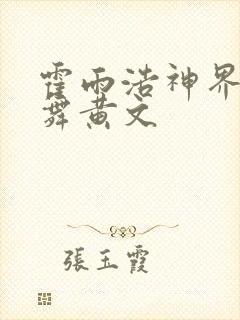 霍雨浩神界
舞黄文
張玉霞